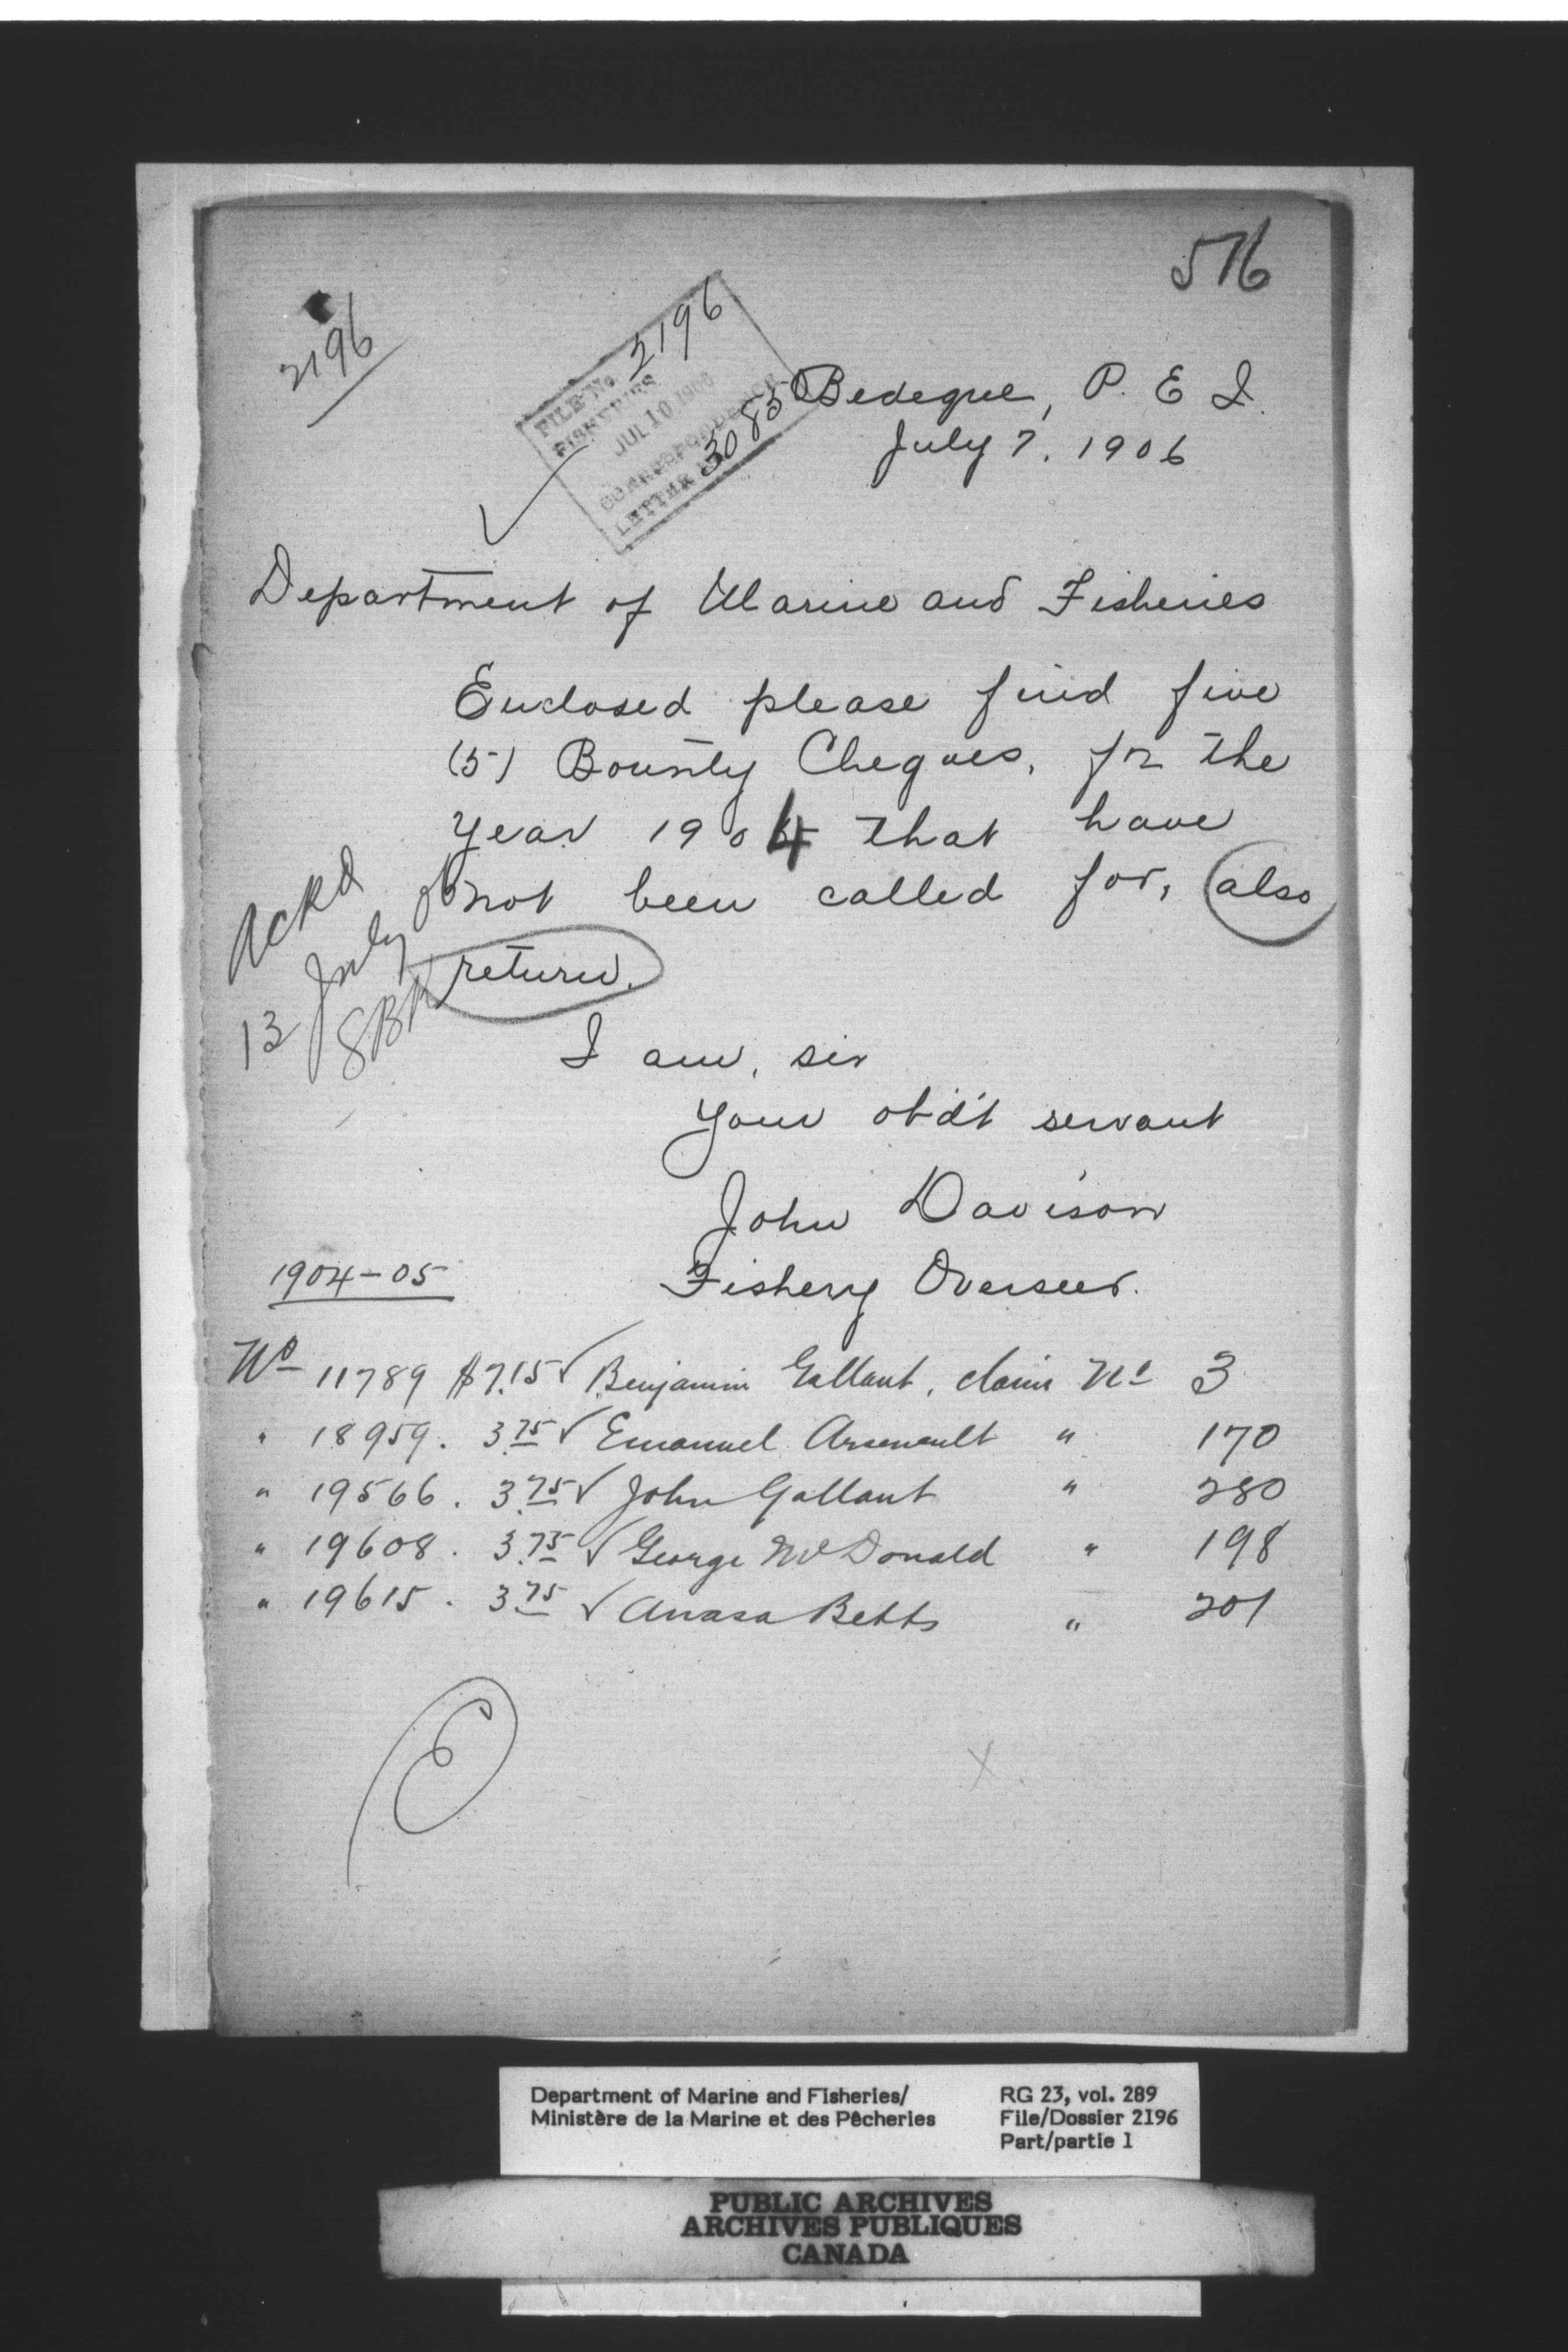 576
2196
FILE No. 2196
FISHERIES
JUL 10 1906
CORRESPONDENCE
LETTER No. 3085
Bedeque, P. E I.
July 7, 1906
Department of Marine and Fisheries
Enclosed please find five
(5) Bounty Cheques, for the
year 1904 that have
not been called for, also
return.
Ackd
13 July 06
SBK
I am, sir
your obd't servant
John Davison
Fishery Overseer.
1904-05
No 11789 $7.15 ✓ Benjamin Gallant, claim No 3
" 18959. 3.75 ✓ Emanuel Arsenault " 170
" 19566. 3.75 ✓ John Gallant " 280
" 19608. 3.75 ✓ George McDonald " 198
" 19615. 3.75 ✓ Amasa Betts " 201
E
X
Department of Marine and Fisheries/
Ministère de la Marine et des Pêcheries
RG 23, vol. 289
File/Dossier 2196
Part/partie 1
PUBLIC ARCHIVES
ARCHIVES PUBLIQUES
CANADA